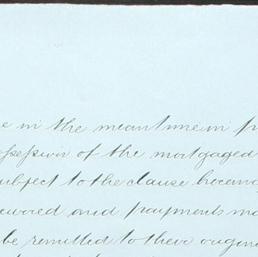 e in the meantime in p
ossession of the mortgaged
subject to the clause herein
and payments ma
be remitted to their origin